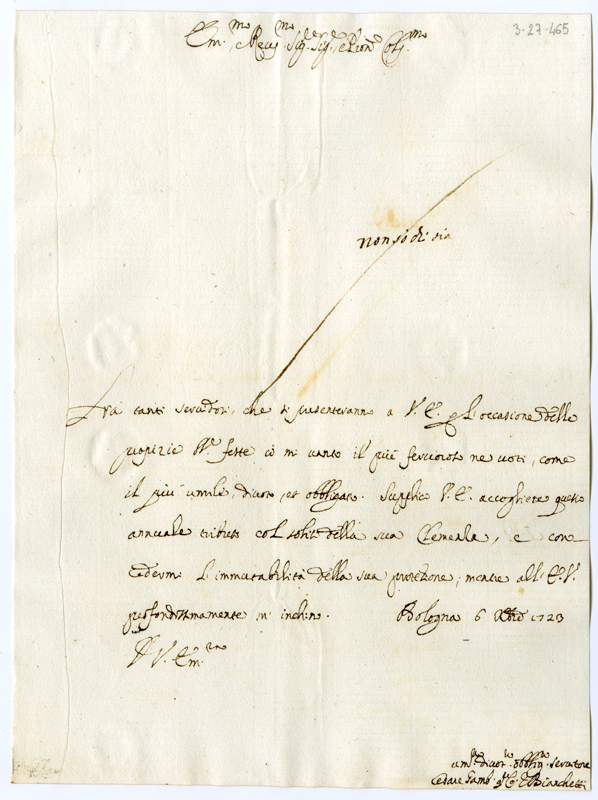 3-27-465
Em.mo e Rev.mo Sig. Sig. e Pron. Oss.mo
non si di sia
Fra' tanti servidori, che si presenteranno a V. E. p l'occasione delle
propizie SS.me feste io mi vanto il più fervoroso ne voti, come
il più umile, divoto, et obbligato. Supplico V. E. accogliere questo
annuale tributo col solito della sua Clemenza, e con-
cedermi l'immutabilità della sua protezione; mentre all'E. V.
profondissimamente m'inchino. Bologna 6 Xbre 1723
D V. Em.za
um.o divot.o obblig.o servitore
Cesare Bianchetti